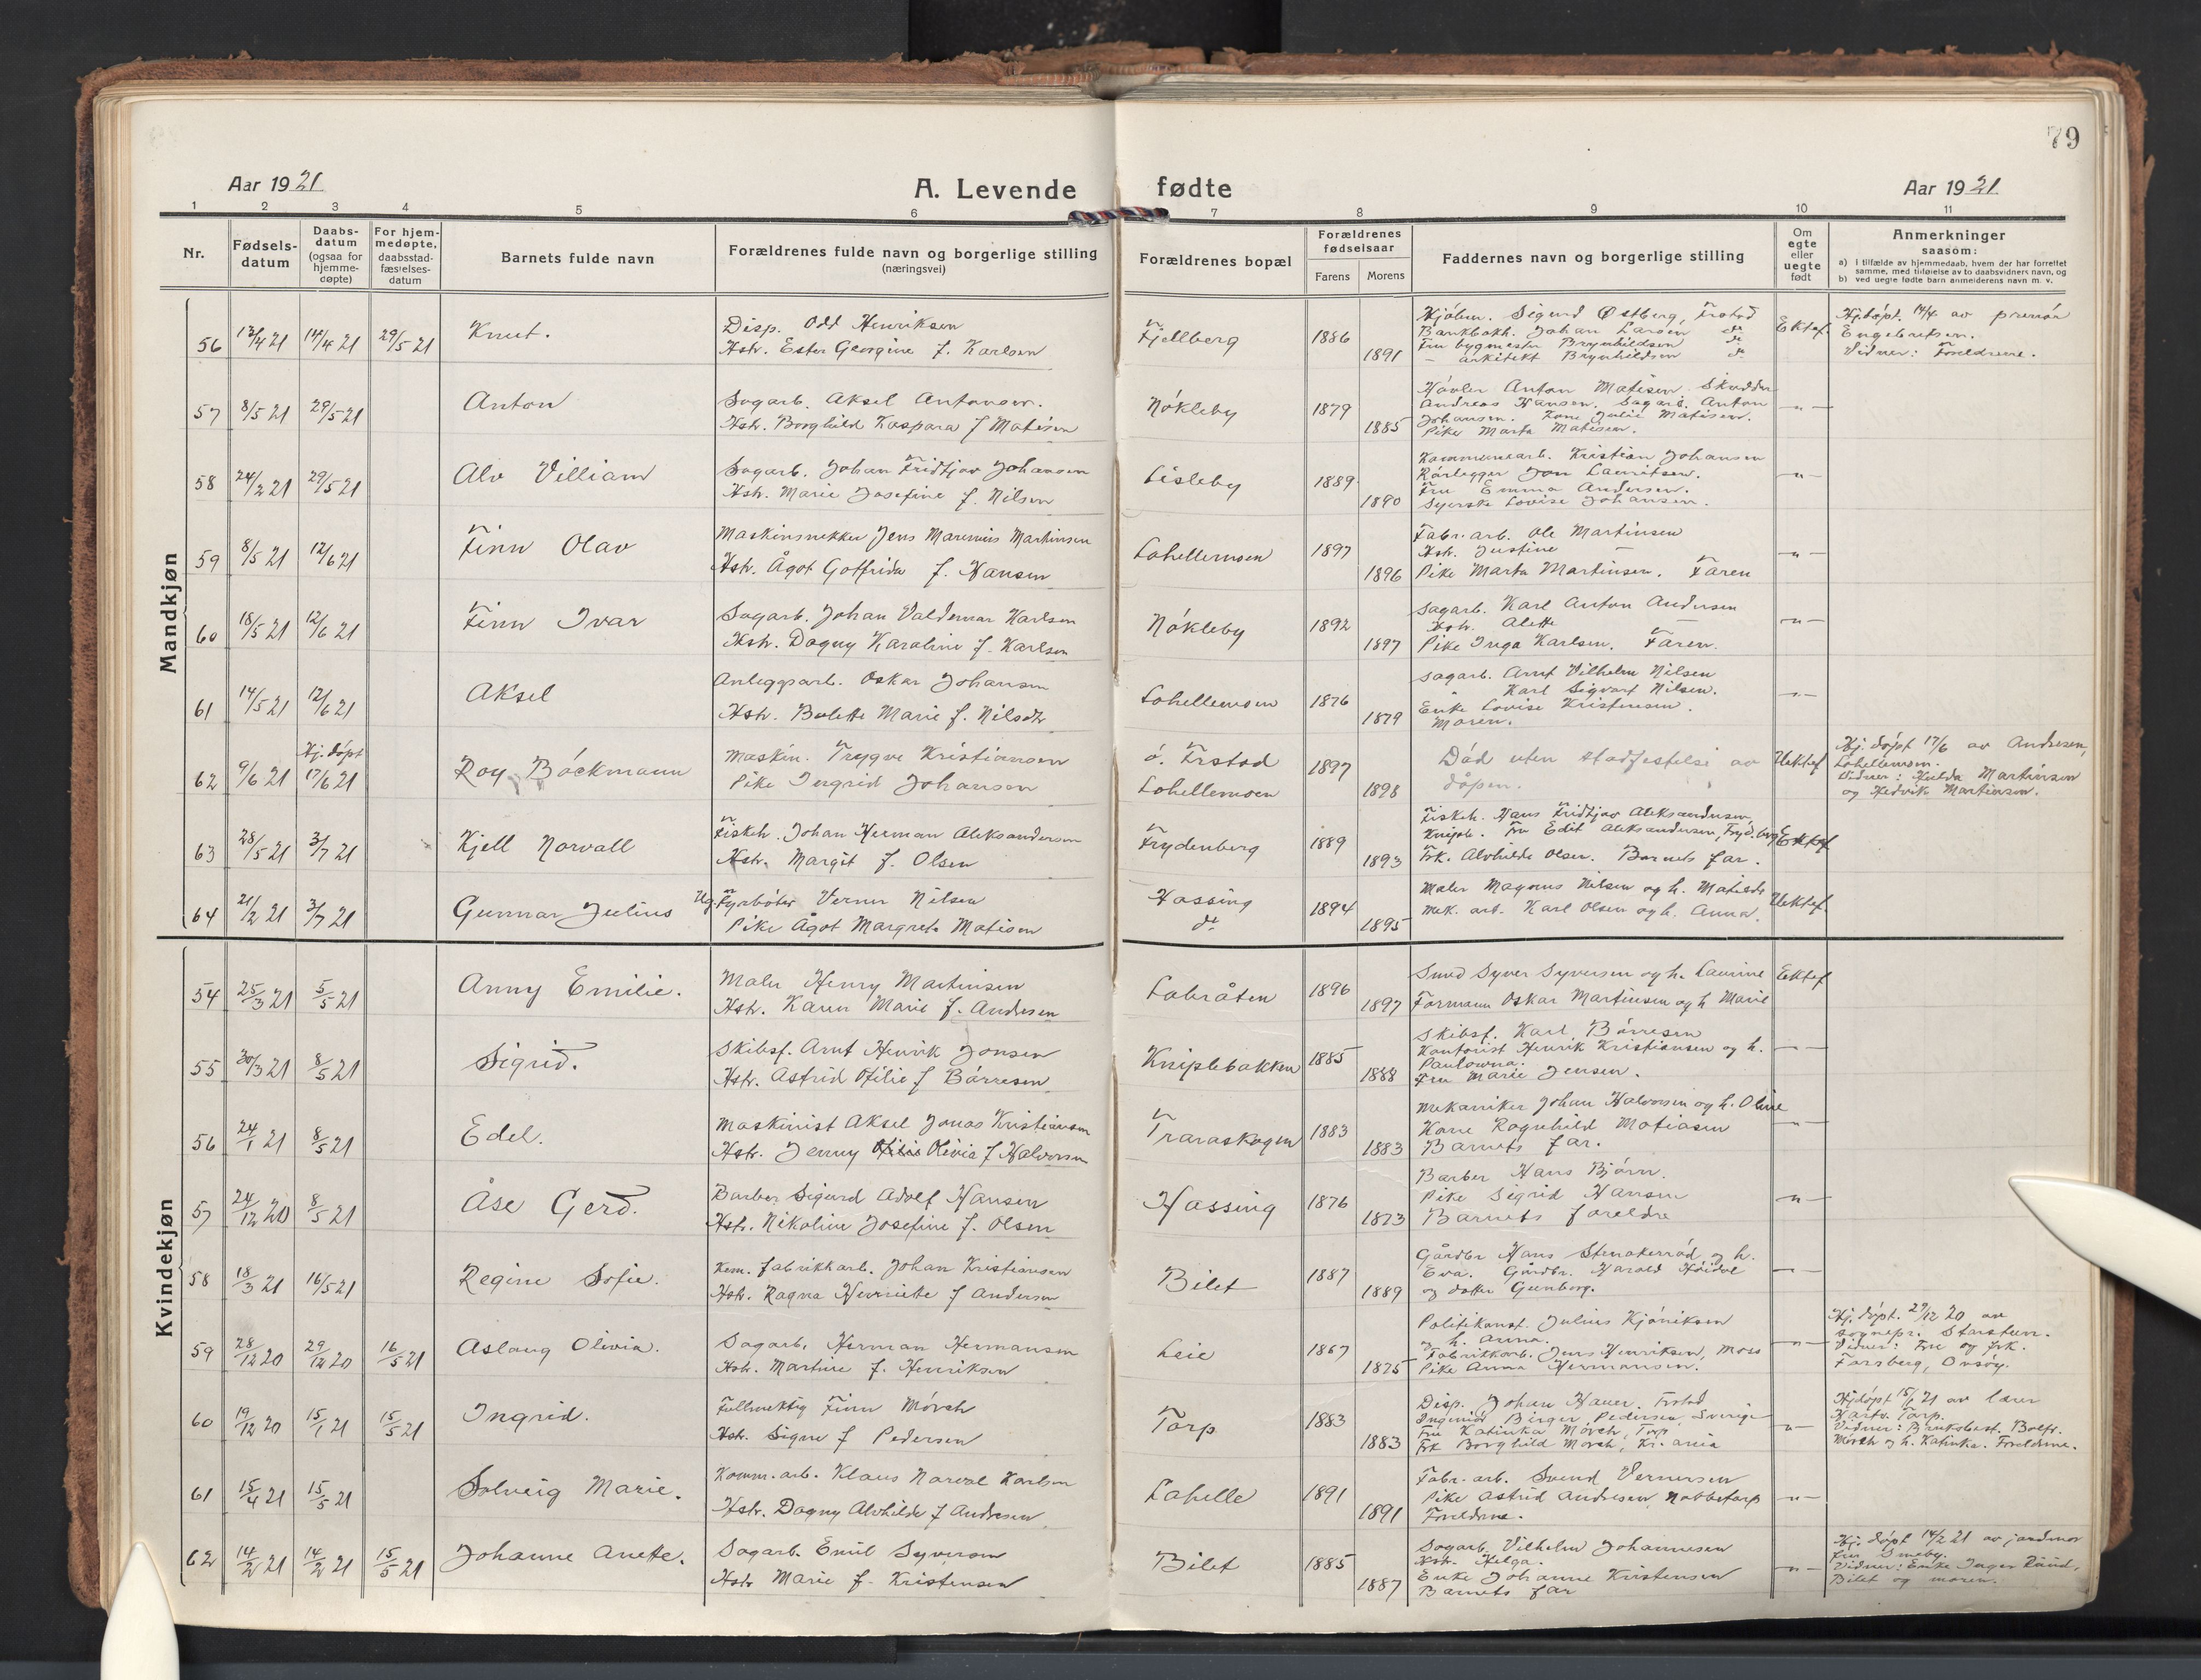 79
Aar 1921
A. Levende fødte
Aar 1921
1 2 3 4 5 6 7 8 9 10 11
Nr.
Fødselsdatum
Daabsdatum (ogsaa for hjemmedøpte)
For hjemmedøpte, daabsstadfæstelsesdatum
Barnets fulde navn
Forældrenes fulde navn og borgerlige stilling (næringsvei)
Forældrenes bopæl
Forældrenes fødselsaar
Farens Morens
Faddernes navn og borgerlige stilling
Om egte eller uegte født
Anmerkninger
saasom:
a) i tilfælde av hjemmedaab, hvem der har forrettet samme, med tilføielse av to daabsvidners navn, og
b) ved uegte fødte barn anmelderens navn m. v.
Mandkjøn
56 13/4 21 14/4 21 29/5 21 Knut.
Disp. Odd Henriksen
Hstr. Ester Georgine f. Karlsen
Fjellberg 1886 1891
Kjøbm. Sigurd Østberg, Frstad
Bankbokh. Johan Larsen do
Fru bygmester Brynhildsen do
— arkitekt Brynhildsen do
Ektef.
Hj.døpt. 14/4 av prerson
Engebretsen.
Vidner: Foreldrene.
57 8/5 21 29/5 21 Anton
Sagarb. Aksel Antonsen.
Hstr. Borghild Kaspara f Matisen
Nökleby 1879 1885
Hövler Anton Matisen.
Andreas Hansen. Sagarb. Anton
Johansen. Kone Julie Matisen.
Pike Marta Matisen.
— " —
58 24/2 21 29/5 21 Alv Villiam
Sagarb. Johan Fridtjov Johansen
Hstr. Marie Josefine f. Nilsen
Lisleby 1889 1890
Kommunearb. Kristian Johansen
Rörlegger Jon Lauritsen.
Fru Emma Andersen.
Syerske Lovise Johansen.
— " —
59 8/5 21 12/6 21 Finn Olav
Maskinsnekker Jens Marenius Martinsen
Hstr. Ågot Gotfrida f. Hansen
Lahellemoen 1897 1896
Fabr. arb. Ole Martinsen
Hstr. Justine —
Pike Marta Martinsen. Faren
— " —
60 18/5 21 12/6 21 Finn Ivar
Sagarb. Johan Valdemar Karlsen
Hstr. Dagny Karoline f. Karlsen
Nökleby 1892 1897
Sagarb. Karl Anton Andersen
Hstr. Alette —
Pike Inga Karlsen. Faren.
— " —
61 14/5 21 12/6 21 Aksel
Anleggsarb. Oskar Johansen
Hstr. Bolette Marie f. Nilsdtr
Lahellemoen 1876 1879
Sagarb. Arnt Vilhelm Nilsen
Karl Sigvart Nilsen.
Enke Lovise Kristensen.
Moren.
— " —
62 9/6 21 Hj. døpt 17/6 21 Roy Böckmann
Maskin. Trygve Kristiansen
Pike Ingrid Johansen
ö. Frstad
Lahellemoen
1897 1898
Död uten stadfestelse av
dåpen.
Uektef
Hj. døpt 17/6 av Andresen,
Lahellemoen.
Vidner: Hulda Martinsen
og Hedvik Martinsen.
63 28/5 21 3/7 21 Kjell Norvall
Fiskeh. Johan Herman Aleksandersen
Hstr. Margit f. Olsen
Frydenberg 1889 1893
Fiskeh. Hans Fridtjov Aleksandersen,
Kniple. Fru Edit Aleksandersen, Fryd.berg
Frk. Alvhilda Olsen. Barnets far.
Ektef
64 21/2 21 3/7 21 Gunnar Julius
Ug. Fyrböter Verner Nilsen
Pike Ågot Margrete Matisen
Hassing
do
1894 1895
Maler Magnus Nilsen og h. Matilde
Mek. arb. Karl Olsen og h. Anna.
Uektef.
Kvindekjøn
54 25/3 21 5/5 21 Anny Emilie.
Maler Henry Martinsen
Hstr. Karen Marie f. Andresen
Labråten 1896 1897
Smed Syver Syversen og h. Laurine
Formann Oskar Martinsen og h Marie
Ektef
55 30/3 21 8/5 21 Sigrid.
Skibsf. Arnt Henrik Jonsen
Hstr. Astrid Otilie f Börresen
Kniplebakken 1885 1888
Skibsf. Karl Börresen
Kontorist Henrik Kristiansen og h.
Paulowna.
Fru Marie Jensen.
— " —
56 24/1 21 8/5 21 Edel.
Maskinist Aksel Jonas Kristiansen
Hstr. Jenny Olivia f Halvorsen
Traraskogen 1883 1883
Mekaniker Johan Halvorsen og h. Oline
Kone Ragnhild Matiasen
Barnets far.
— " —
57 24/12 20 8/5 21 Åse Gerd.
Barber Sigurd Adolf Hansen
Hstr. Nikoline Josefine f. Olsen
Hassing 1876 1873
Barber Hans Bjørn.
Pike Sigrid Hansen
Barnets foreldre
— " —
58 18/3 21 16/5 21 Regine Sofie.
Kem. fabrikkarb. Johan Kristiansen
Hstr. Ragna Henriette f Andersen
Bilet 1887 1889
Gårdbr Hans Stenakerröd og h.
Eva. Gårdbr. Harald
og datter Gunborg.
— " —
59 28/12 20 29/12 20 16/5 21 Aslaug Olivia.
Sagarb. Herman Hermansen
Hstr. Martine f. Henriksen
Leie 1867 1875
Politikonst. Julius Kjöniksen
og h. Anna.
Fabrikkarb. Jens Henriksen, Moss
Pike Anna Hermansen.
— " —
Hj. døpt. 29/12 20 av
sognepr. Starsteen.
Vidner: Fru og frk.
Farsberg, Onsöy.
60 19/12 20 15/1 21 15/5 21 Ingrid.
Fullmektig Finn Mörch
Hstr. Signe f Pedersen
Torp 1883 1883
Disp. Johan Hauer. Frstad
Ingeniör Birger Pedersen, Sverige
Fru Katinka Mörch, Torp
Frk Borghild Mörch, Kr.ania
— " —
Hjdøpt 15/1 21 av lærer
Hartv. Torp.
Vidner: Bruksbest. Bolfr.
Mörch og h. Katinka. Foreldrene.
61 15/4 21 15/5 21 Solveig Marie.
Komm. arb. Klaus Norval Karlsen
Hstr. Dagny Alvhilde f Andresen
Lahelle 1891 1891
Fabr. arb. Svend Vernersen
Pike Astrid Andresen, Nabbetorp
Foreldrene.
— " —
62 14/2 21 14/2 21 15/5 21 Johanne Anette.
Sagarb. Emil Syversen
Hstr Marie f. Kristensen
Bilet 1885 1887
Sagarb. Vilhelm Johannesen
Hstr. Helga.
Enke Johanne Kristensen
Barnets far
— " —
Hj. døpt 14/2 21 av jordmor
Fru Smeby.
Vidner: Enke Inger Lund,
Bilet og moren.